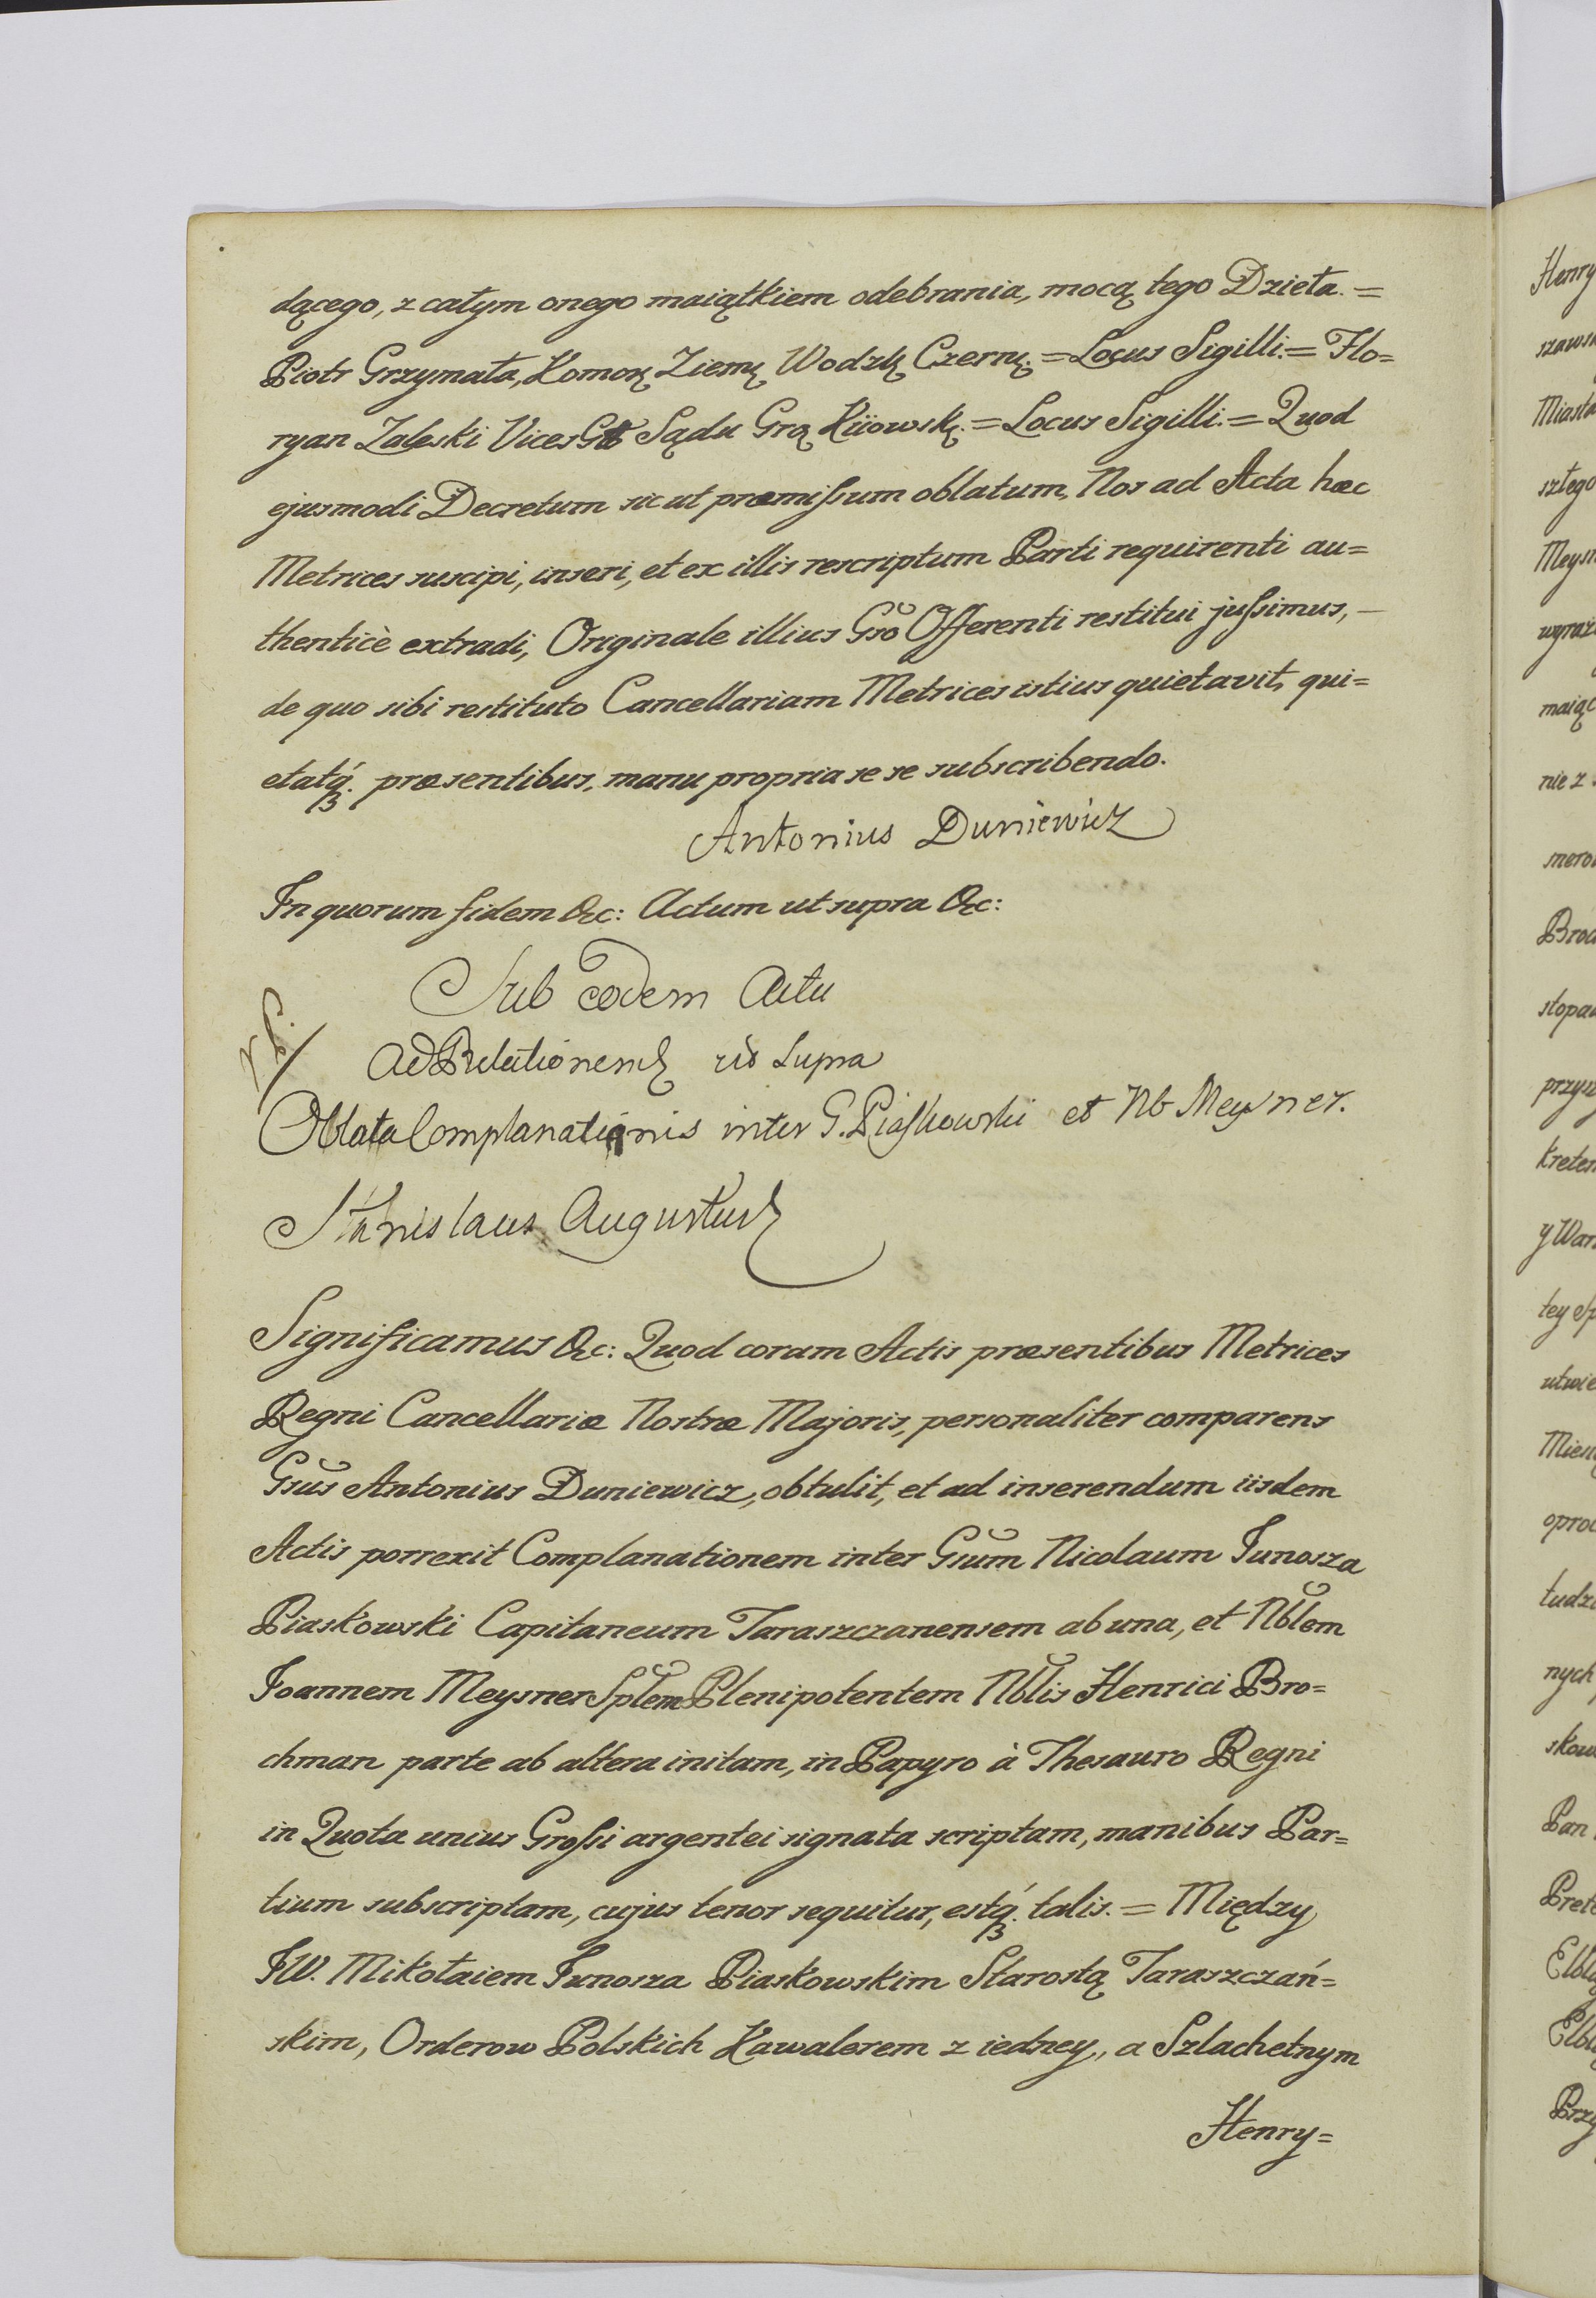 dącego, z całym onego maiątkiem odebrania, mocą tego Dzieła. =
Piotr Grzymała, Komorꝫ Ziemꝫ Wodzkꝫ Czernꝫ. = Locus Sigilli. = Flo=
ryan Zaleski Vices Sądu Grꝫ Kiiowskꝫ. = Locus Sigilli. = Quod
ejusmodi Decretum sicut præmiſsum oblatum, Nos ad Acta hæc
Metrices suscipi, inseri, et ex illis rescriptum Parti requirenti au=
thenticè extradi, Originale illius Gso Offerenti restitui juſsimus, —
de quo sibi restituto Cancellariam Metrices istius quietavit, qui=
etatqꝫ. præsentibus, manu propria se se subscribendo.
Antonius Duniewicz
In quorum fidem &c: Actum ut supra &c:
Sub eodem Actu
Ad Relationem supra
Oblata Complanationis inter G. Piaſkowski et Nb Meysner.
Stanislaus Augustus
Significamus &c: Quod coram Actis præsentibus Metrices
Regni Cancellariæ Nostræ Majoris, personaliter comparens
Gsus Antonius Duniewicz, obtulit, et ad inserendum iisdem
Actis porrexit Complanationem inter Gsum Nicolaum Junosza
Piaskowski Capitaneum Taraszczanensem ab una, et Nblem
Joannem Meysner Splem Plenipotentem Nblis Henrici Bro=
chman parte ab altera initam, in Papyro à Thesauro Regni
in Quota unius Groſsi argentei signata scriptam, manibus Par=
tium subscriptam, cujus tenor sequitur, estqꝫ. talis. = Między
JW. Mikołaiem Junosza Piaskowskim Starostą Taraszczań=
skim, Orderow Polskich Kawalerem z iedney, a Szlachetnym
Henry=